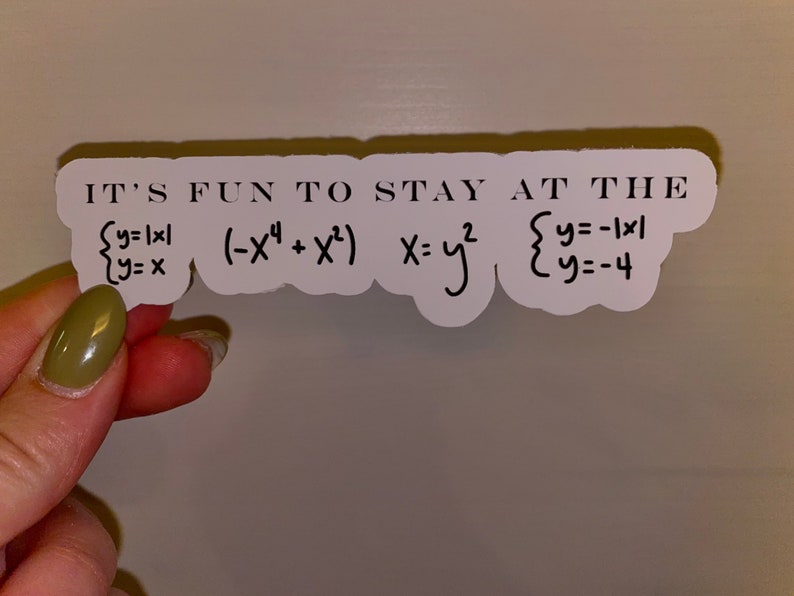 IT'S FUN TO STAY AT THE
{y=|x| y=x (-x⁴+x²) x=y² {y=-|x| y=-4